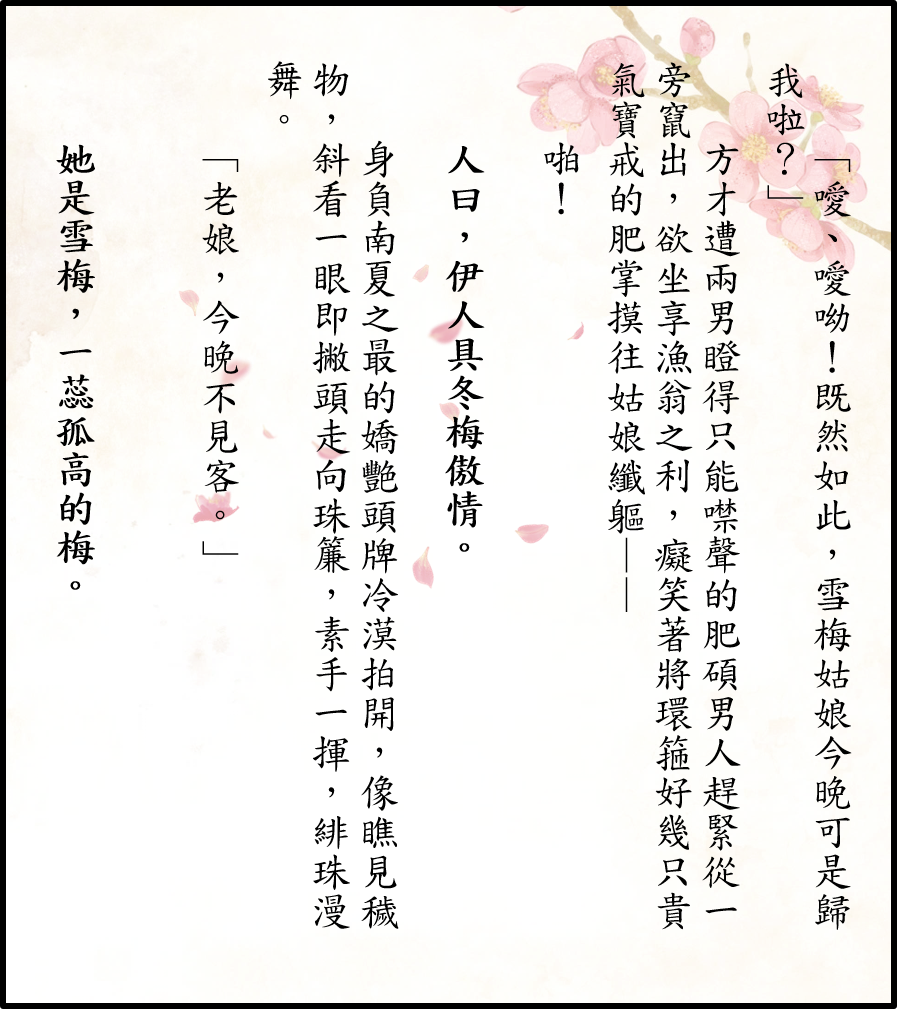 「噯、噯呦！既然如此，雪梅姑娘今晚可是歸
我啦？」
方才遭兩男瞪得只能噤聲的肥碩男人趕緊從一
旁竄出，欲坐享漁翁之利，癡笑著將環箍好幾只貴
氣寶戒的肥掌摸往姑娘纖軀——
啪！
人曰，伊人具冬梅傲情。
身負南夏之最的嬌艷頭牌冷漠拍開，像瞧見穢
物，斜看一眼即撇頭走向珠簾，素手一揮，緋珠漫
舞。
「老娘，今晚不見客。」
她是雪梅，一蕊孤高的梅。